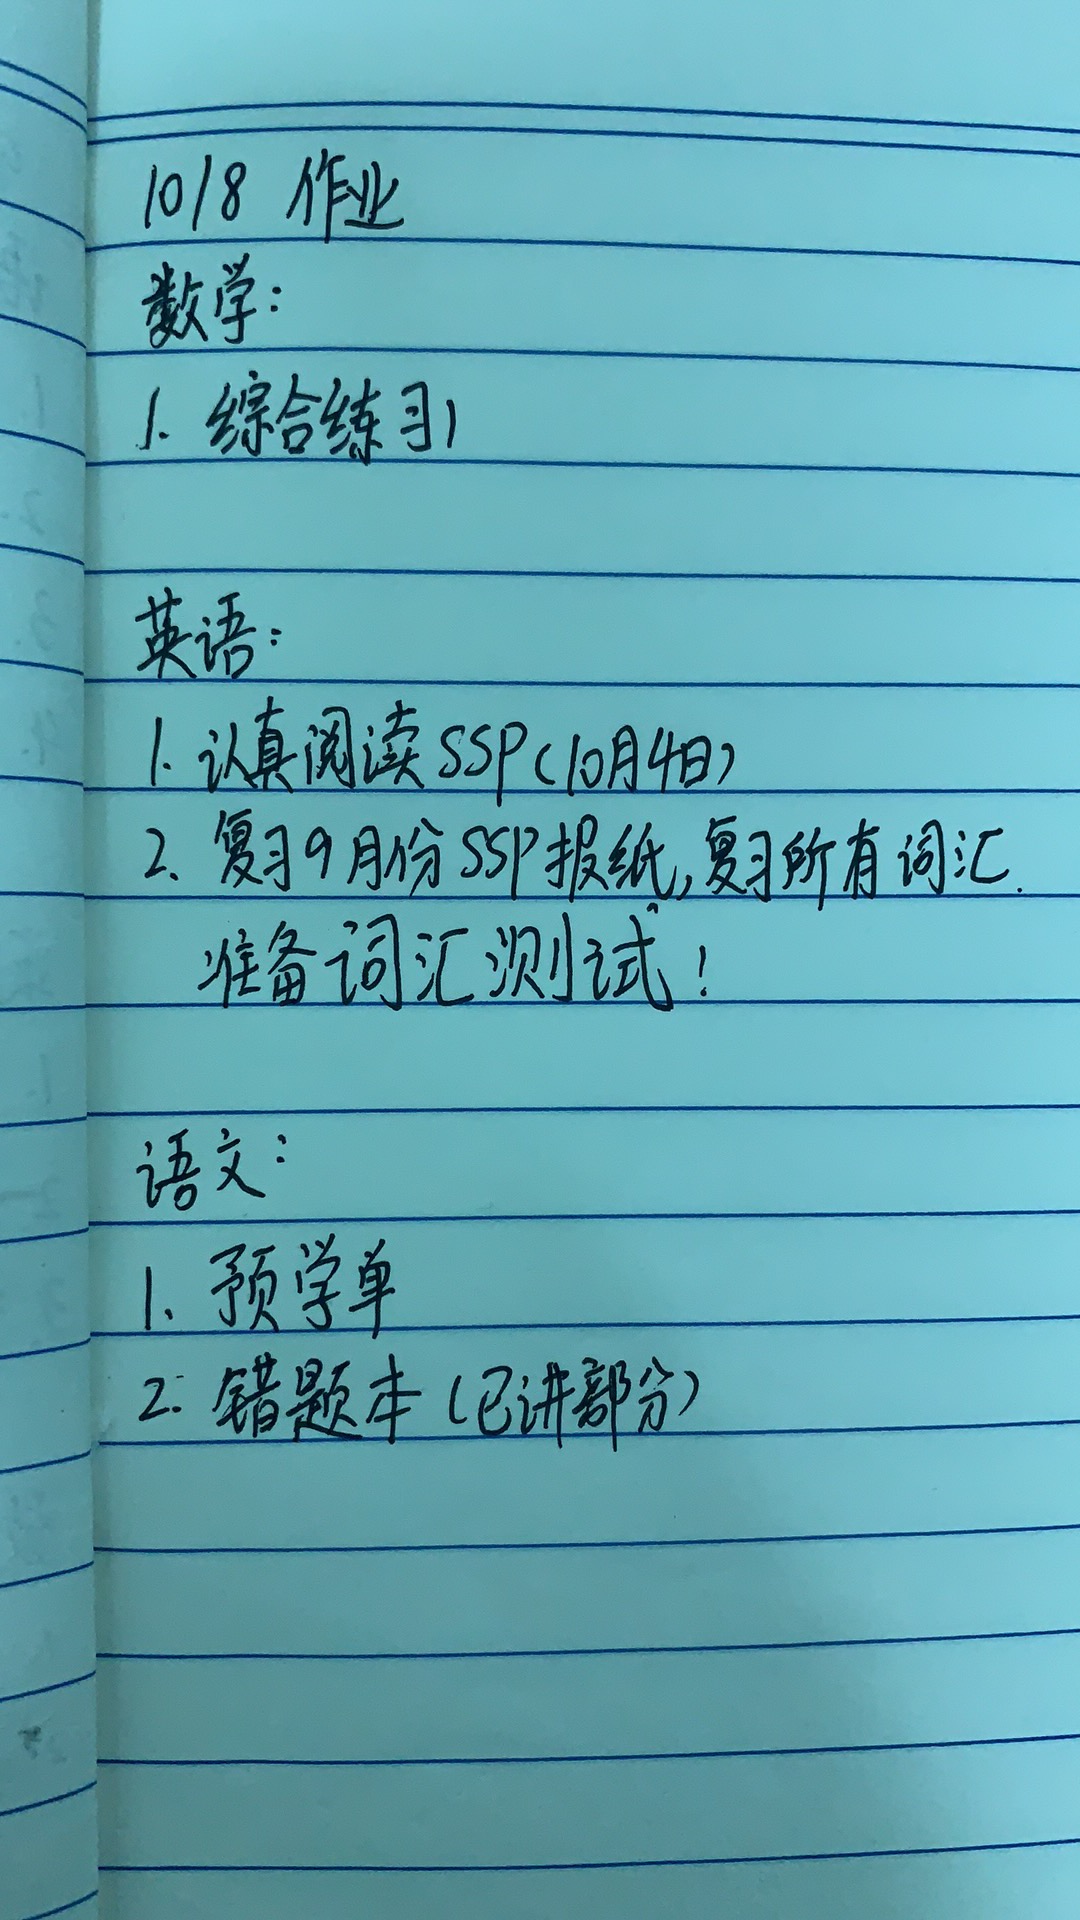 10/8 作业
数学:
1. 综合练习1
英语:
1. 认真阅读SSP(10月4日)
2. 复习9月份SSP报纸,复习所有词汇.
准备词汇测试!
语文:
1. 预学单
2. 错题本(已讲部分)